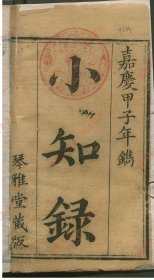 嘉慶甲子年鐫
小知録
琴雅堂藏版